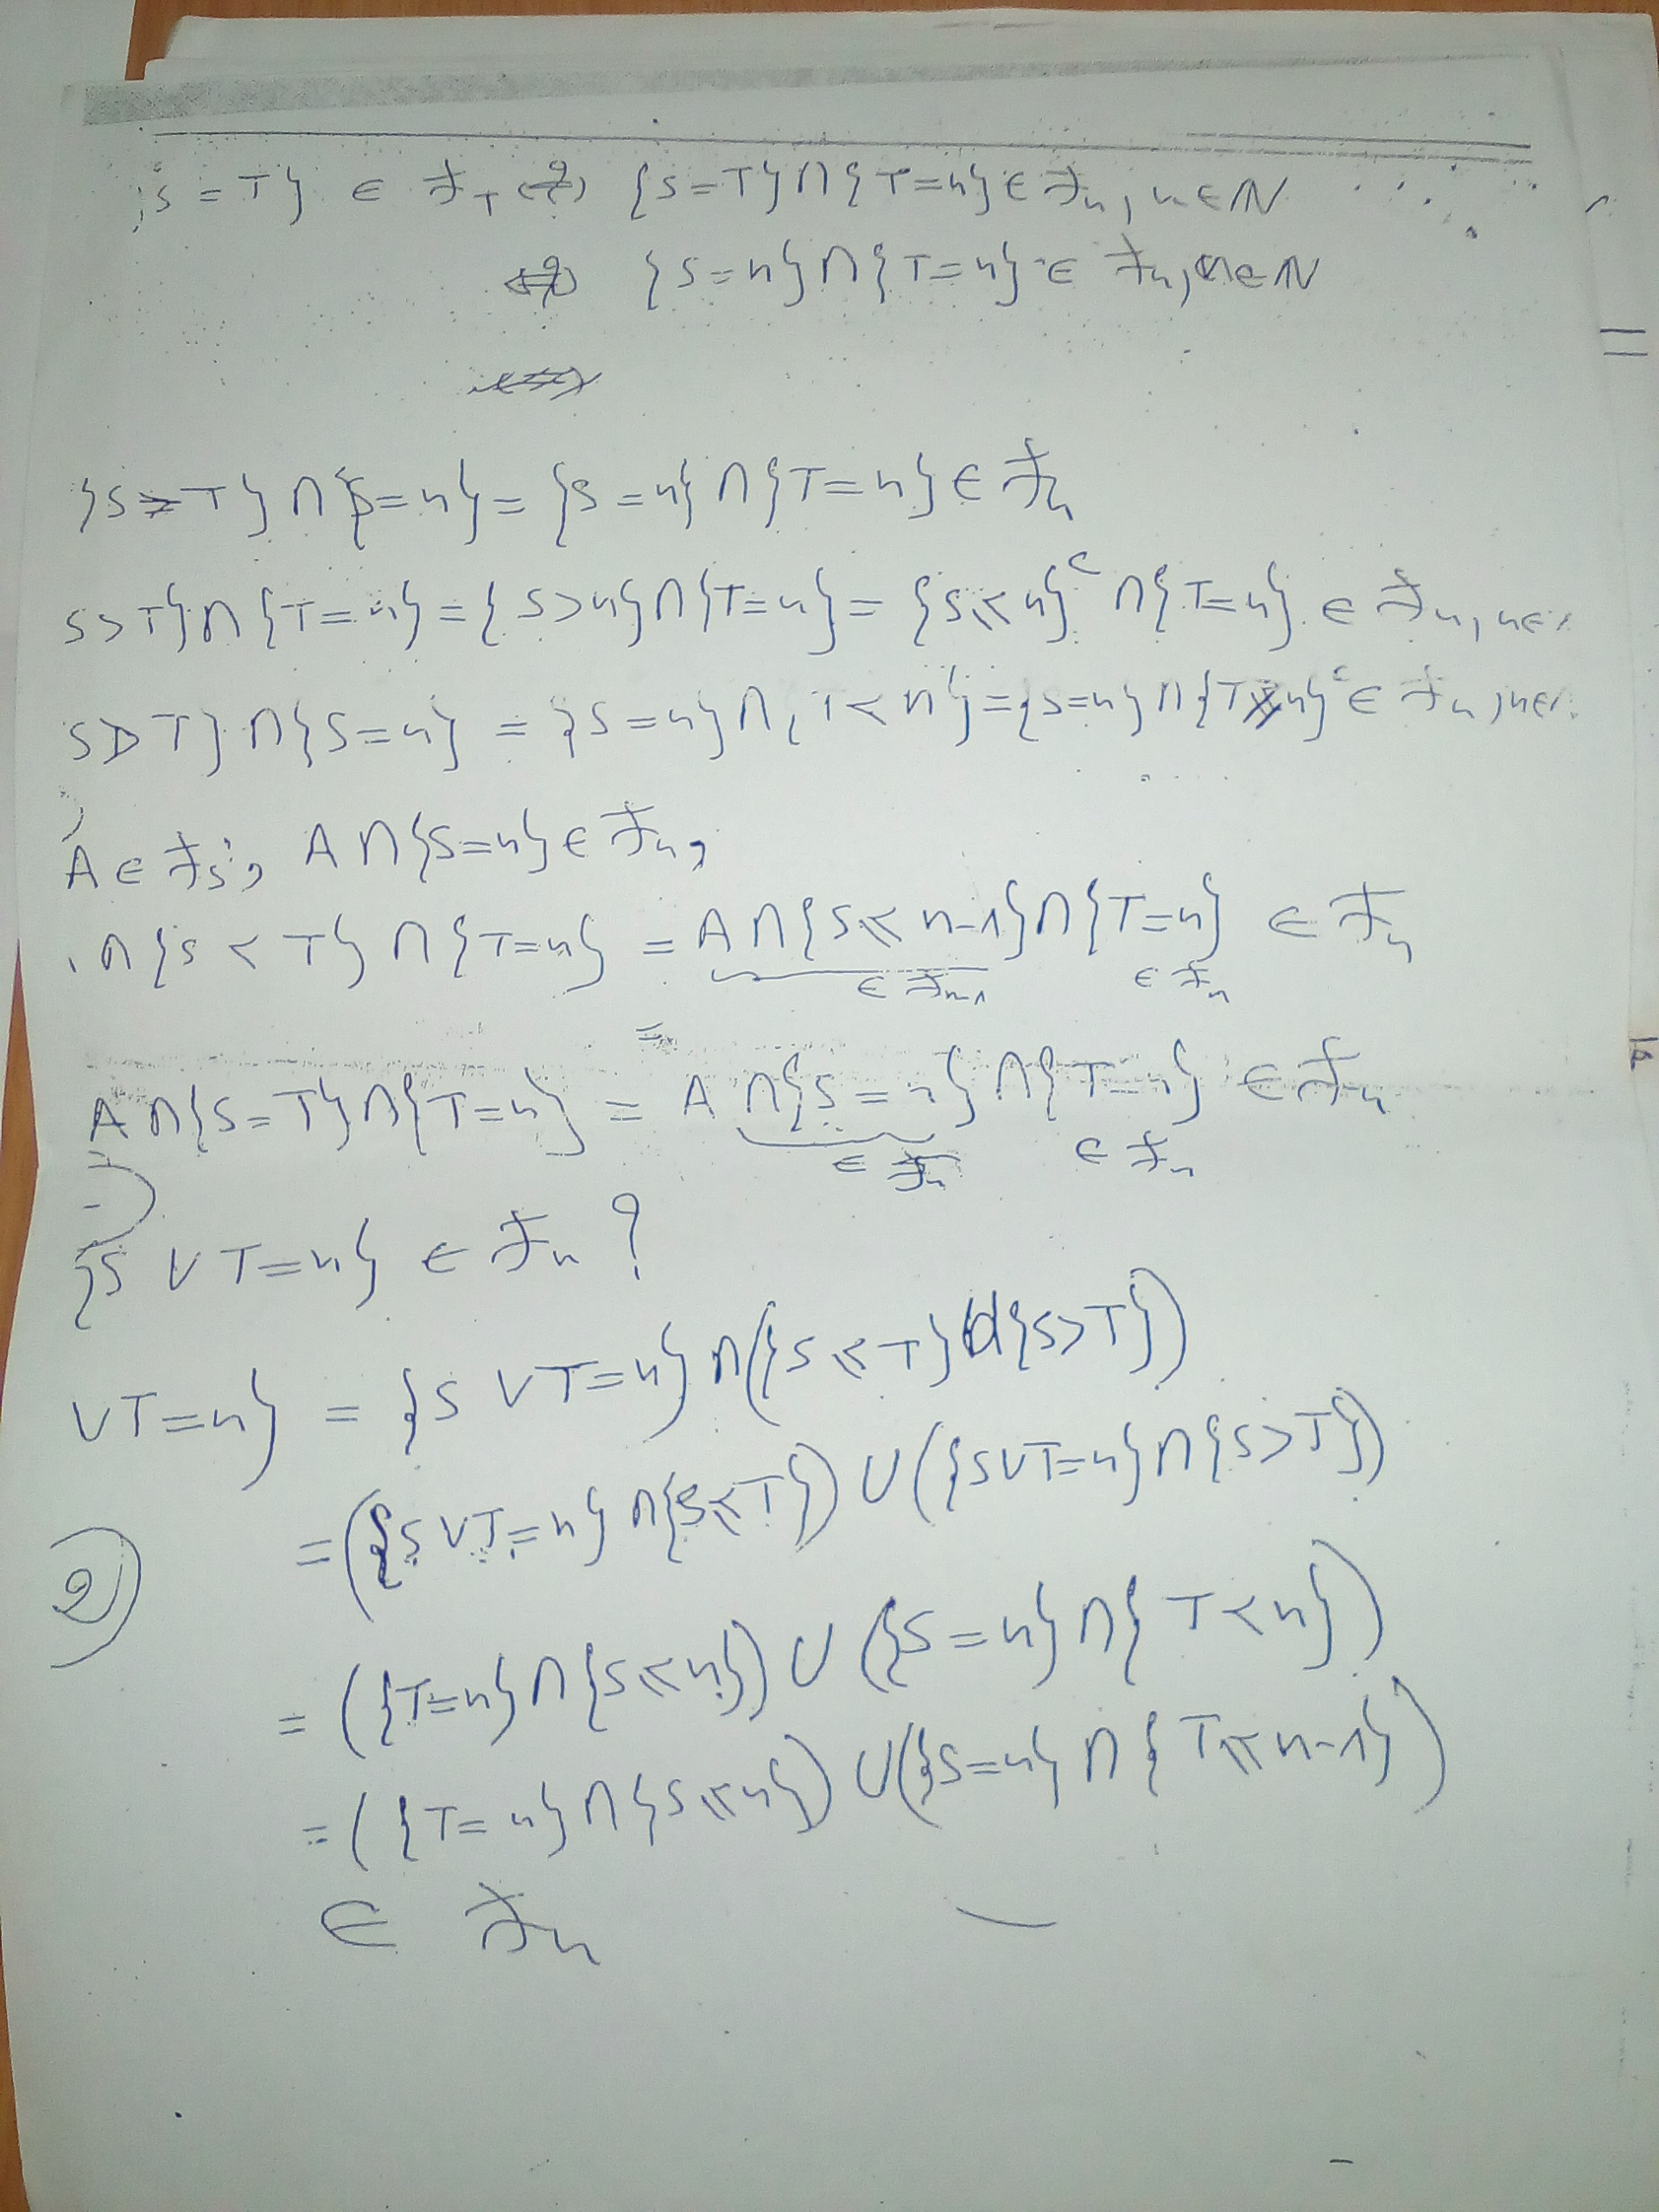 {S = T} ∈ ℱ_T ⇔ {S=T}∩{T=n} ∈ ℱ_n, n∈ℕ
⇔ {S=n}∩{T=n} ∈ ℱ_n, n∈ℕ
{S=T}∩{S=n} = {S=n}∩{T=n} ∈ ℱ_n
S>T}∩{T=n} = {S>n}∩{T=n} = {S≤n}^c ∩{T=n} ∈ ℱ_n, n∈
S>T}∩{S=n} = {S=n}∩ T<n} = {S=n}∩{T n}^c ∈ ℱ_n, n∈
A ∈ ℱ_S, A∩{S=n} ∈ ℱ_n,
∩{S<T}∩{T=n} = A∩{S≤n-1}∩{T=n} ∈ ℱ_n
∈ ℱ_{n-1} ∈ ℱ_n
=
A∩{S=T}∩{T=n} = A∩{S=n}∩{T=n} ∈ ℱ_n
∈ ℱ_n ∈ ℱ_n
{S∨T=n} ∈ ℱ_n ?
∨T=n} = {S∨T=n}∩({S≤T}∪{S>T})
= ({S∨T=n}∩{S≤T}) ∪ ({S∨T=n}∩{S>T})
②
= ({T=n}∩{S≤n}) ∪ ({S=n}∩{T<n})
= ({T=n}∩{S≤n}) ∪ ({S=n}∩{T≤n-1})
∈ ℱ_n